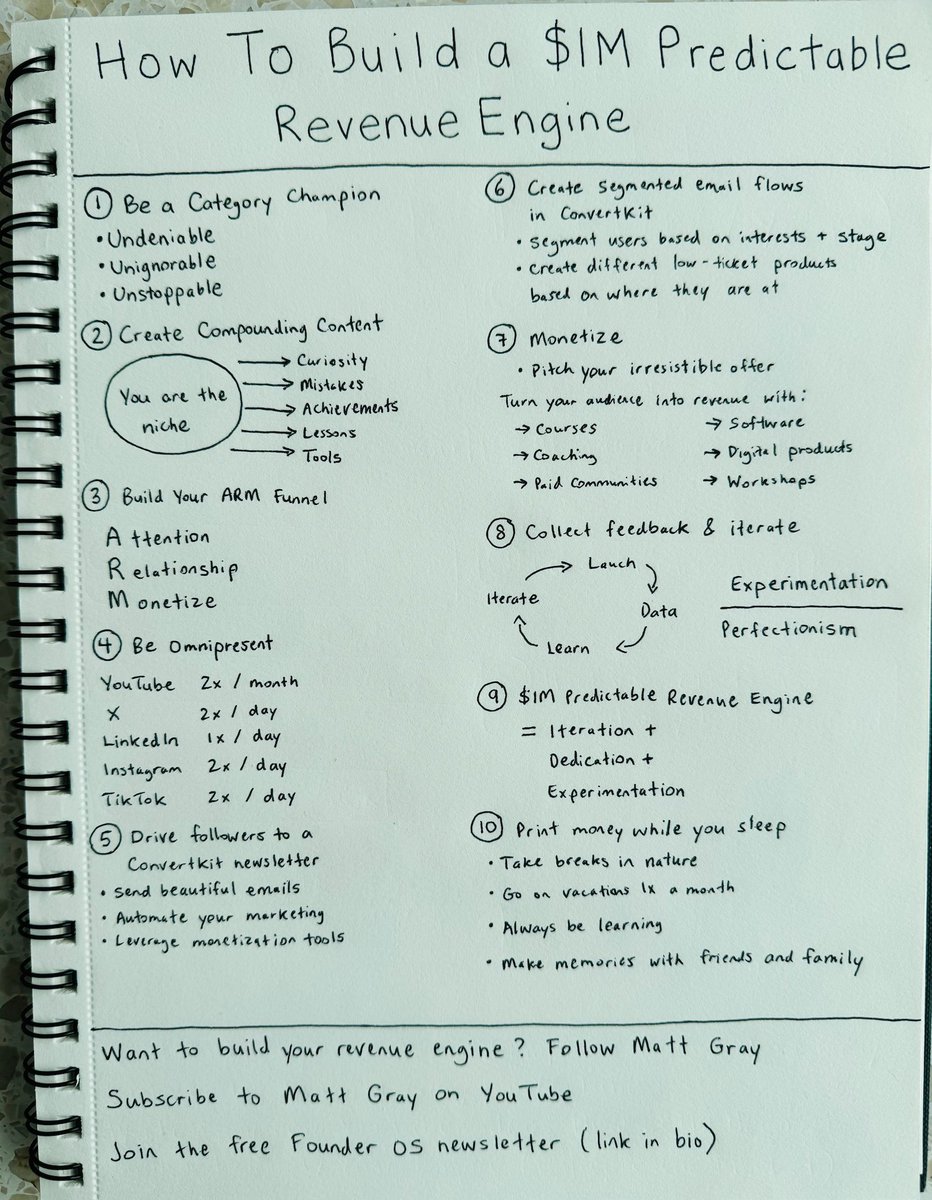 How To Build a $1M Predictable
Revenue Engine
1 Be a Category Champion
• Undeniable
• Unignorable
• Unstoppable
2 Create Compounding Content
You are the
niche
→ Curiosity
→ Mistakes
→ Achievements
→ Lessons
→ Tools
3 Build Your ARM Funnel
Attention
Relationship
Monetize
4 Be Omnipresent
YouTube 2x / month
X 2x / day
LinkedIn 1x / day
Instagram 2x / day
TikTok 2x / day
5 Drive followers to a
ConvertKit newsletter
• Send beautiful emails
• Automate your marketing
• Leverage monetization tools
6 Create segmented email flows
in ConvertKit
• Segment users based on interests + stage
• Create different low-ticket products
based on where they are at
7 Monetize
• Pitch your irresistible offer
Turn your audience into revenue with:
→ Courses → Software
→ Coaching → Digital products
→ Paid Communities → Workshops
8 Collect feedback & iterate
Lauch
Data
Learn
Iterate
Experimentation
Perfectionism
9 $1M Predictable Revenue Engine
= Iteration +
Dedication +
Experimentation
10 Print money while you sleep
• Take breaks in nature
• Go on vacations 1x a month
• Always be learning
• Make memories with friends and family
Want to build your revenue engine? Follow Matt Gray
Subscribe to Matt Gray on YouTube
Join the free Founder OS newsletter (link in bio)